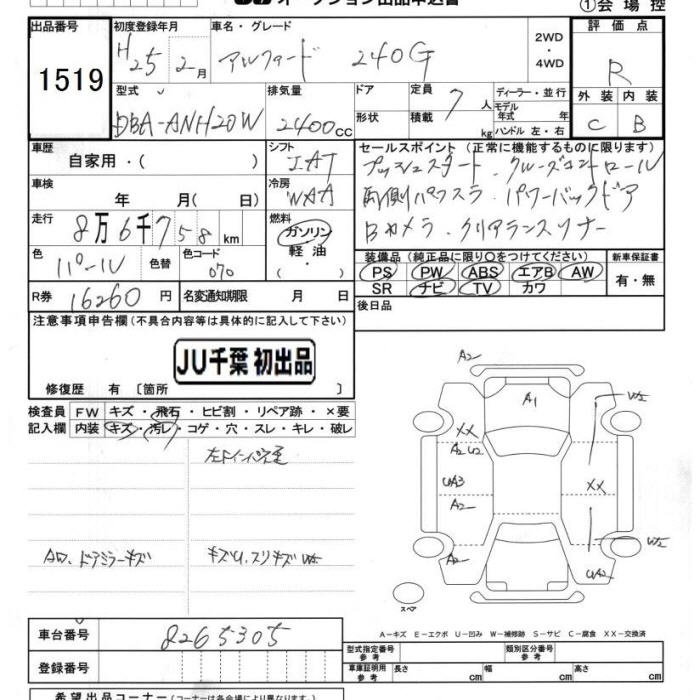 オークション出品申込書
①会場控
出品番号 初度登録年月 車名・グレード 評価点
1519
H25 2月 アルファード 240G 2WD・4WD R
型式 排気量 ドア 定員 ディーラー・並行 外装 内装
形状 積載 7人 モデル年式 年式
DBA-ANH20W 2400cc kg ハンドル 左・右 C B
車歴 シフト セールスポイント(正常に機能するものに限ります)
自家用・( ) IAT プッシュスタート・クルーズコントロール
車検 冷房 両側パワスラ・パワーバックドア
年 月( ) WAA
走行 燃料 Bカメラ・クリアランスソナー
8万6千758km ガソリン・軽油・
色 色替 色コード 装備品(純正品に限り○をつけてください) 新車保証書
パール 070 PS PW ABS エアB AW 有・無
SR ナビ TV カワ
R券 16260円 名変通知期限 月 日 後日品
注意事項申告欄(不具合内容等は具体的に記入して下さい)
JU千葉 初出品
修復歴 有〔箇所 〕
検査員記入欄 FW キズ・飛石・ヒビ割・リペア跡・×要
内装 キズ・汚レ・コゲ・穴・スレ・キレ・破レ
AW、ドアミラーキズ
A2
A1
W2
XX
A2 U2
UA3
XX
A2
A2
W2
UA2
スペア
A－キズ E－エクボ U－凹み W－補修跡 S－サビ C－腐食 XX－交換済
車台番号 8265305
登録番号
型式指定番号 参考 類別区分番号 参考
車庫証明用 参考 長さ cm 幅 cm 高さ cm
希望出品コーナー(コーナーは各会場により異なります)